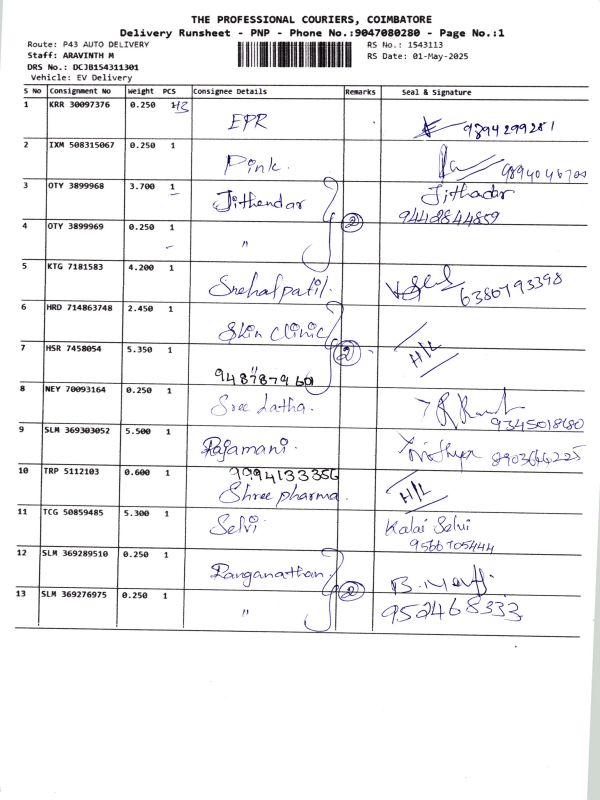 THE PROFESSIONAL COURIERS, COIMBATORE
Delivery Runsheet - PNP - Phone No.:9047080280 - Page No.:1
Route: P43 AUTO DELIVERY RS No.: 1543113
Staff: ARAVINTH M RS Date: 01-May-2025
DRS No.: DCJB154311301
Vehicle: EV Delivery
S No Consignment No Weight PCS Consignee Details Remarks Seal & Signature
1 KRR 30097376 0.250 1
EPR 9894299251
2 IXM 508315067 0.250 1
Pink.
3 OTY 3899968 3.700 1 Jithendar Jithadar
2 9442844859
4 OTY 3899969 0.250 1
"
5 KTG 7181583 4.200 1
Snehal patil. 6380793398
6 HRD 714863748 2.450 1
Skin clinic
7 HSR 7458054 5.350 1 2 H/L
"
9487879601
8 NEY 70093164 0.250 1
Sree Latha. 9345018680
9 SLM 369303052 5.500 1
Rajamani. 8903646225
10 TRP 5112103 0.600 1 9994133356
Shree pharma. H/L
11 TCG 50859485 5.300 1
Selvi. Kalai Selvi
9566705444
12 SLM 369289510 0.250 1
Ranganathan
13 SLM 369276975 0.250 1 2
" 952468333